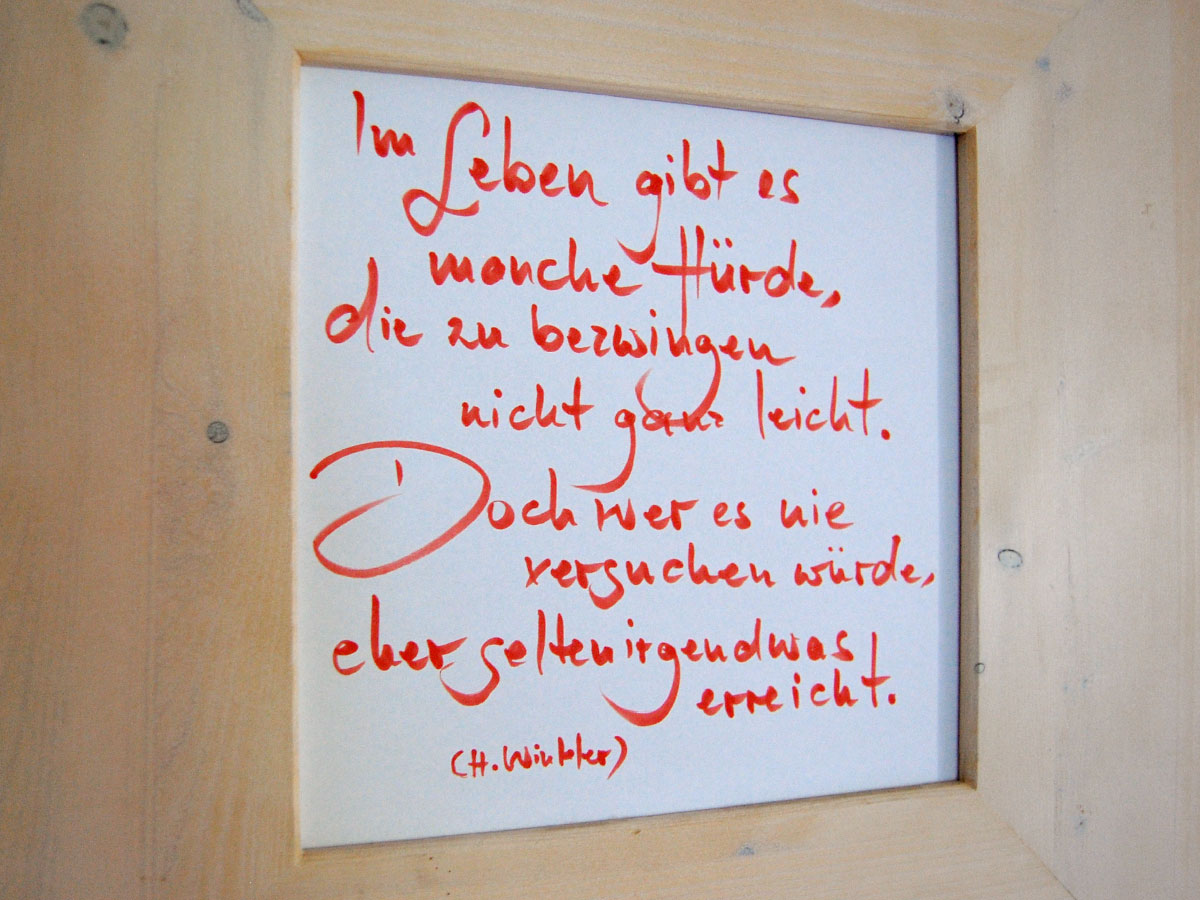 Im Leben gibt es
manche Hürde,
die zu bezwingen
nicht ganz leicht.
Doch wer es nie
versuchen würde,
eher selten irgendwas
erreicht.
(H. Winkler)